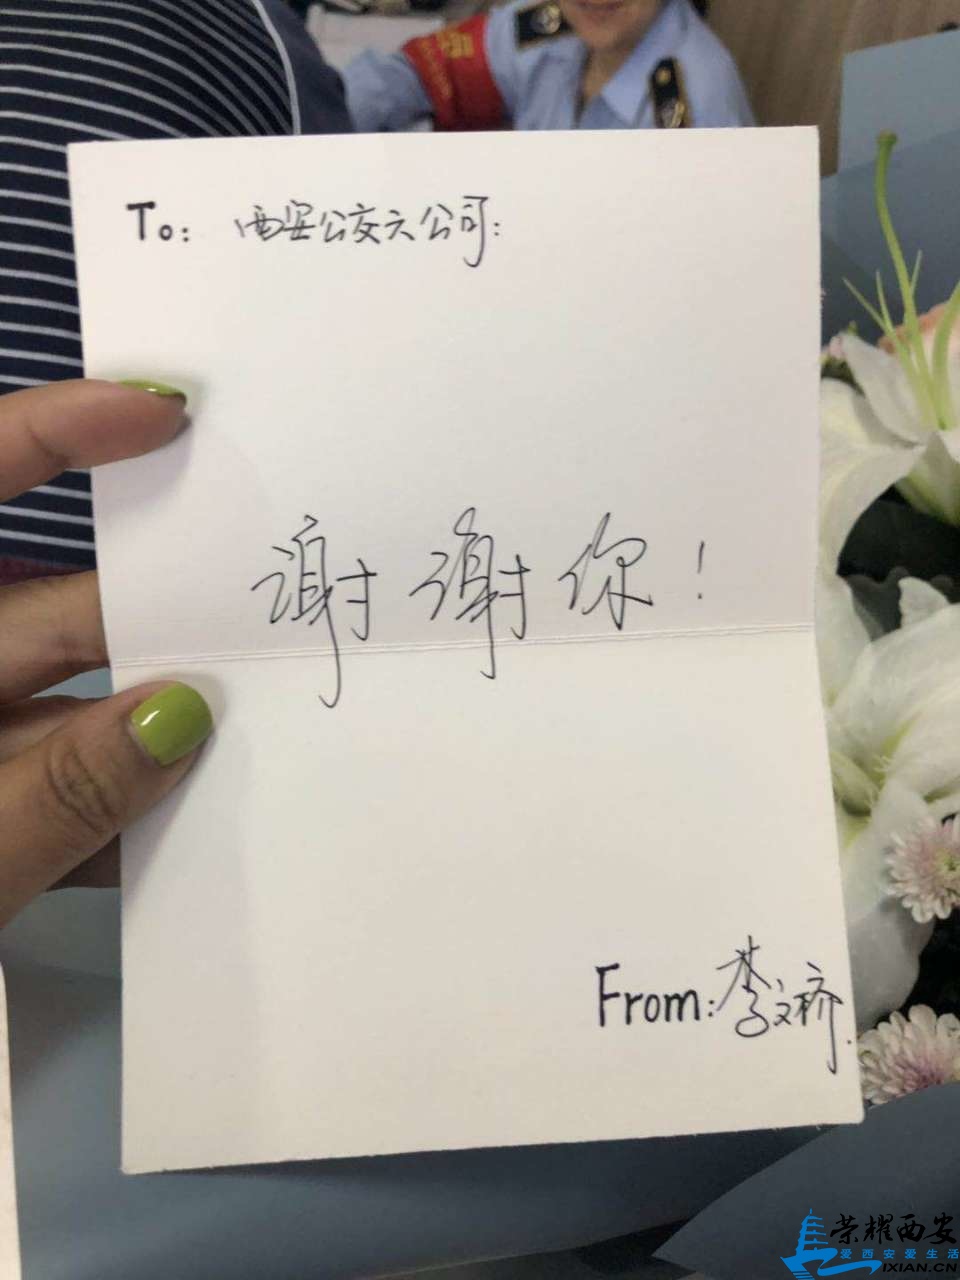 To: 西安公交六公司:
谢谢你!
From: 李文桥.
荣耀西安
爱西安爱生活
IXIAN.CN